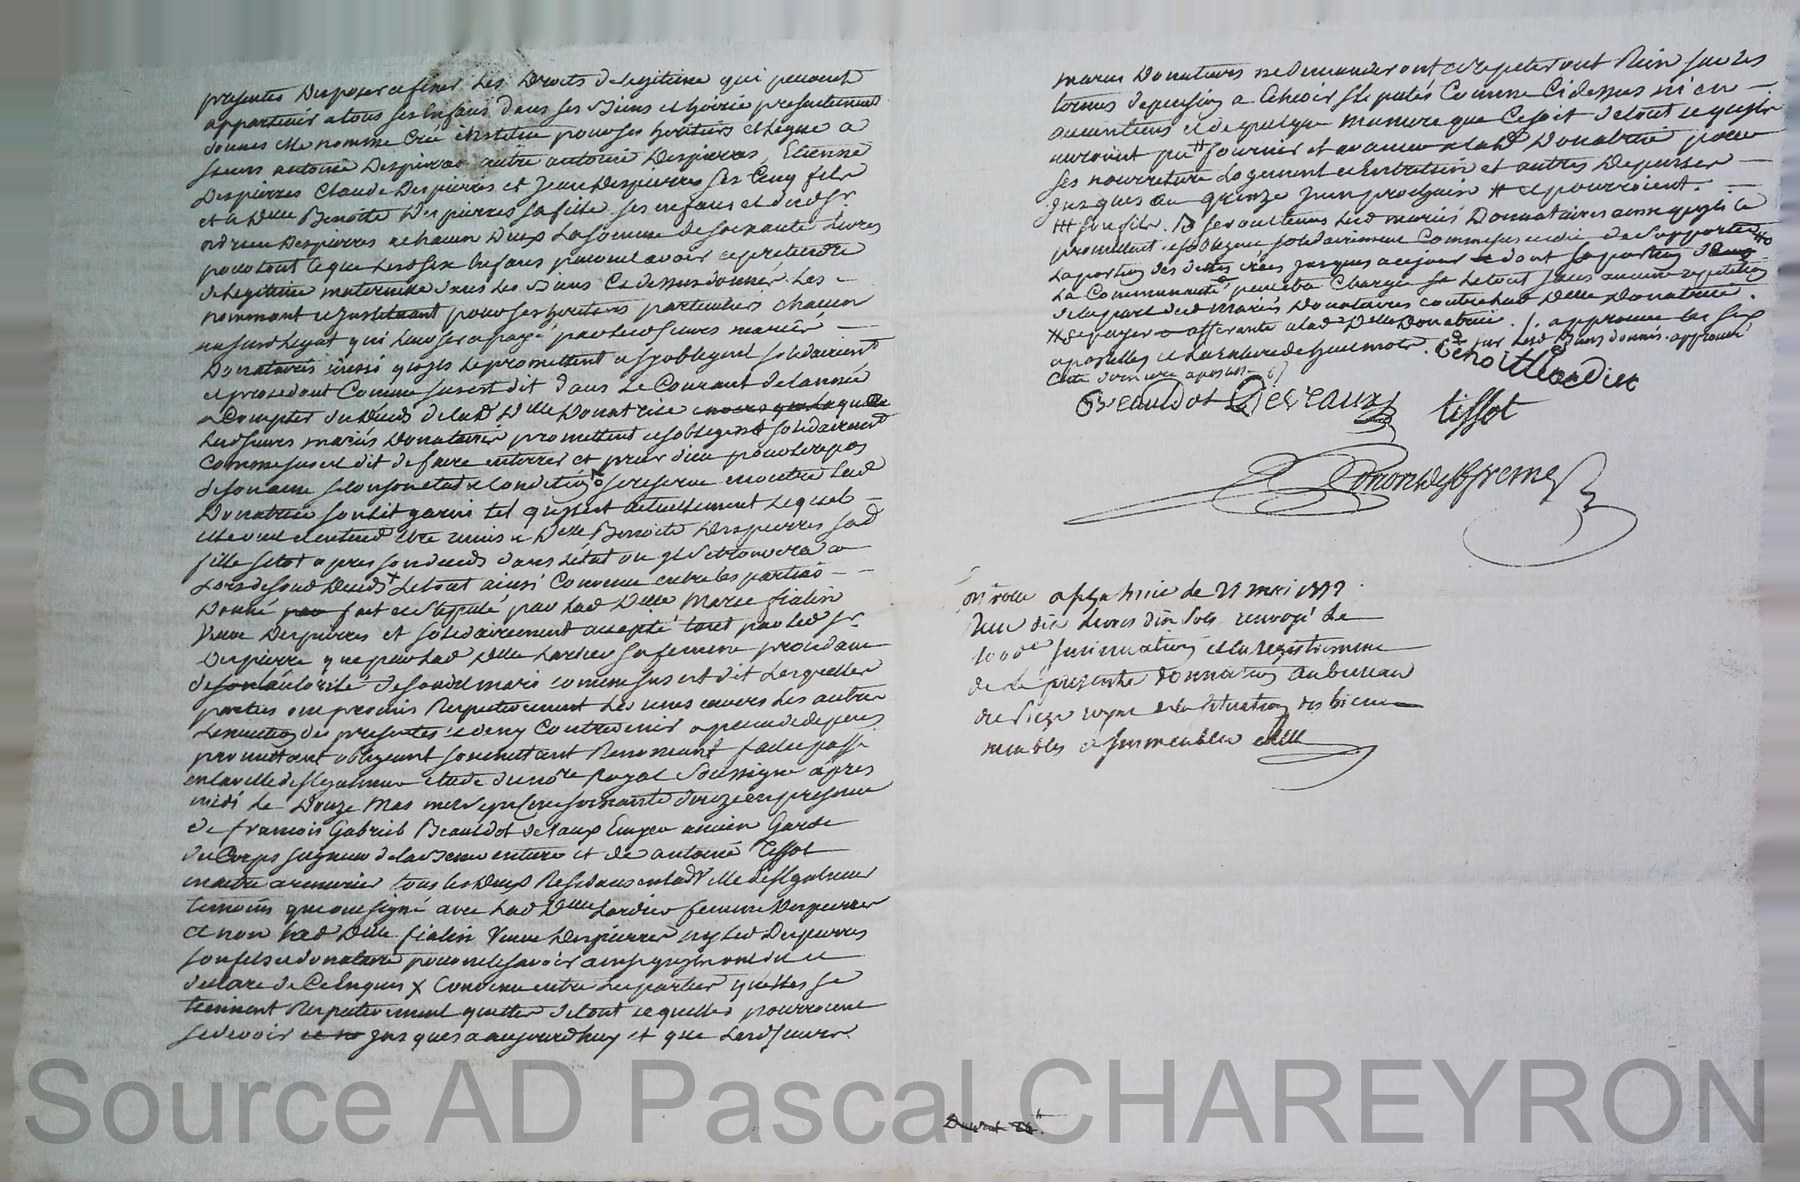 presentes Disposer et fixer Les Droits de legitime qui peuvent
appartenir a tous ses Enfans dans ses Biens et hoirie presentement
donnés elle nomme Crée institue pour ses heritiers et legue a
sieurs antoine Despierres autre antoine Despierres, Etienne
Despierres Claude Despierres et Jean Despierres ses Cinq fils
et a Delle Benoite Despierres sa fille ses enfans et dud Sr
Despierres a chacun Deux La somme de soixante Livres
pour tout ce que Lesd six Enfans peuvent avoir et pretendre
de Legitime maternelle dans Les Biens Ci dessus donnés Les
nommant et Instituant pour ses heritiers particuliers chacun
qui Leur sera payé par lesd sieurs mariés
Donataires ainsi qu'ils le promettent et s'y obligent solidairement
et procedant Comme sus est dit dans Le Courant de l'année
a Compter du Deces de lad Delle Donatrice
Lesd sieurs mariés Donataires promettent et s'obligent solidairement
Comme sus est dit de faire enterrer et prier dieu pour le repos
de son ame selon son etat et Condition se reserve en outre Lad
Donatrice son Lit garni tel qu'il est actuellement Lequel
elle veut et entend etre remis a Delle Benoite Despierres sad
fille sitot apres son deces dans l'etat ou il se trouvera
Lors de sond Deces Le tout ainsi Convenu entre les parties
Donné par fait et stipulé par Lad Delle Marie fialin
Veuve Despierres et solidairement accepté tant par led Sr
Despierre que par Lad Delle Lardier sa femme procedant
de son autorité de sondit mari comme sus est dit Lesquelles
parties ont promis Respectivement Les unes envers Les autres
L'execution des presentes et de n'y Contrevenir a peine de depens
promettant obligeant soumettant Renonçant fait et passé
en la ville de St galmier etude du nore Royal Soussigné apres
midi Le Douze Mai mil sept Cent soixante douze en presence
de francois Gabriel Beauldot Deveaux Ecuyer ancien Garde
du Corps seigneur de la Bonnaventure et de antoine Tissot
maitre armurier tous les Deux Residans en lad Ville de St galmier
temoins qui ont signé avec Lad Delle Lardier femme Despierres
et non Lad Delle fialin Veuve Despierres ny led Despierres
son fils et donataire pour ne le savoir ainsi qu'ils ont dit et
declaré de Ce Enquis X Convenu entre Les parties qu'elles se
tiennent Respectivement quittes de tout ce qu'elles pourroient
se devoir jusques a aujourd'huy et que Lesd sieurs
mariés Donataires ne demanderont et repeteront Rien sur Les
termes de pension a Echeoir stipulés Comme Ci dessus ni en
aucun tems et de quelque maniere que Ce soit de tout ce qu'ils
auroient fournir et avancer a lad Donatrice pour
ses nourriture Logement et Entretien et autres Depenses
jusques au quinze juin prochain # et pourroient.
Lesd mariés Donnataires ainsi qu'ils le
promettent et s'obligent solidairement Comme sus est dit de Supporter
La portion des dettes crées jusques a ce jour dont La portion
La Communauté peut etre Chargée Le tout sans aucune repetition
de la part desd Mariés Donataires contre Lad Delle Donatrice.
afferante a lad Delle Donatrice. approuvé les six
apostilles et La rature de huit mots. sur Lesd Biens donnés. approuvé
Cette derniere apostille
Benoitte lardier
Beauldot Deveaux tissot
Coron des fremes
Controllé a St galmier le 21 mai 1772
Reçu dix Livres dix sols renvoyé le
100e insinuation et l'enregistrement
de La presente donnation au bureau
du siege royal de la situation des biens
meubles et immeubles
Source AD Pascal CHAREYRON